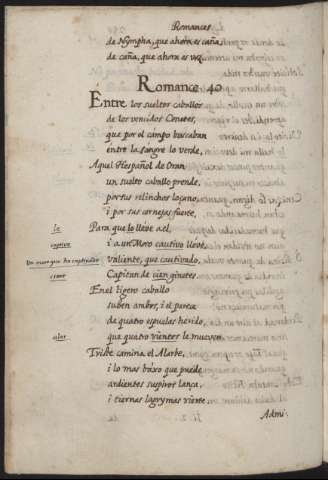 Romances
de Nympha, que ahora es caña,
de caña, que ahora es voz.
Romance 40
Entre los sueltos caballos
de los vencidos Cenetes,
que por el campo buscaban
entre la sangre lo verde,
Aquel Hespañol de Oran
un suelto caballo prende,
por sus relinchos loçano,
i por sus cernejas fuerte,
Para que lo lleve a el,
le
i a un Moro cautivo lleve,
captivo
valiente, que cautivado,
Un moro que ha captivado
Capitan de cien ginetes
En el ligero caballo
suben ambos, i el parece
de quatro espuelas herido,
que quatro vientos le mueven.
alas
Triste camina el Alarbe,
i lo mas baxo que puede
ardientes suspiros lança,
i tiernas lagrymas vierte.
Admi-